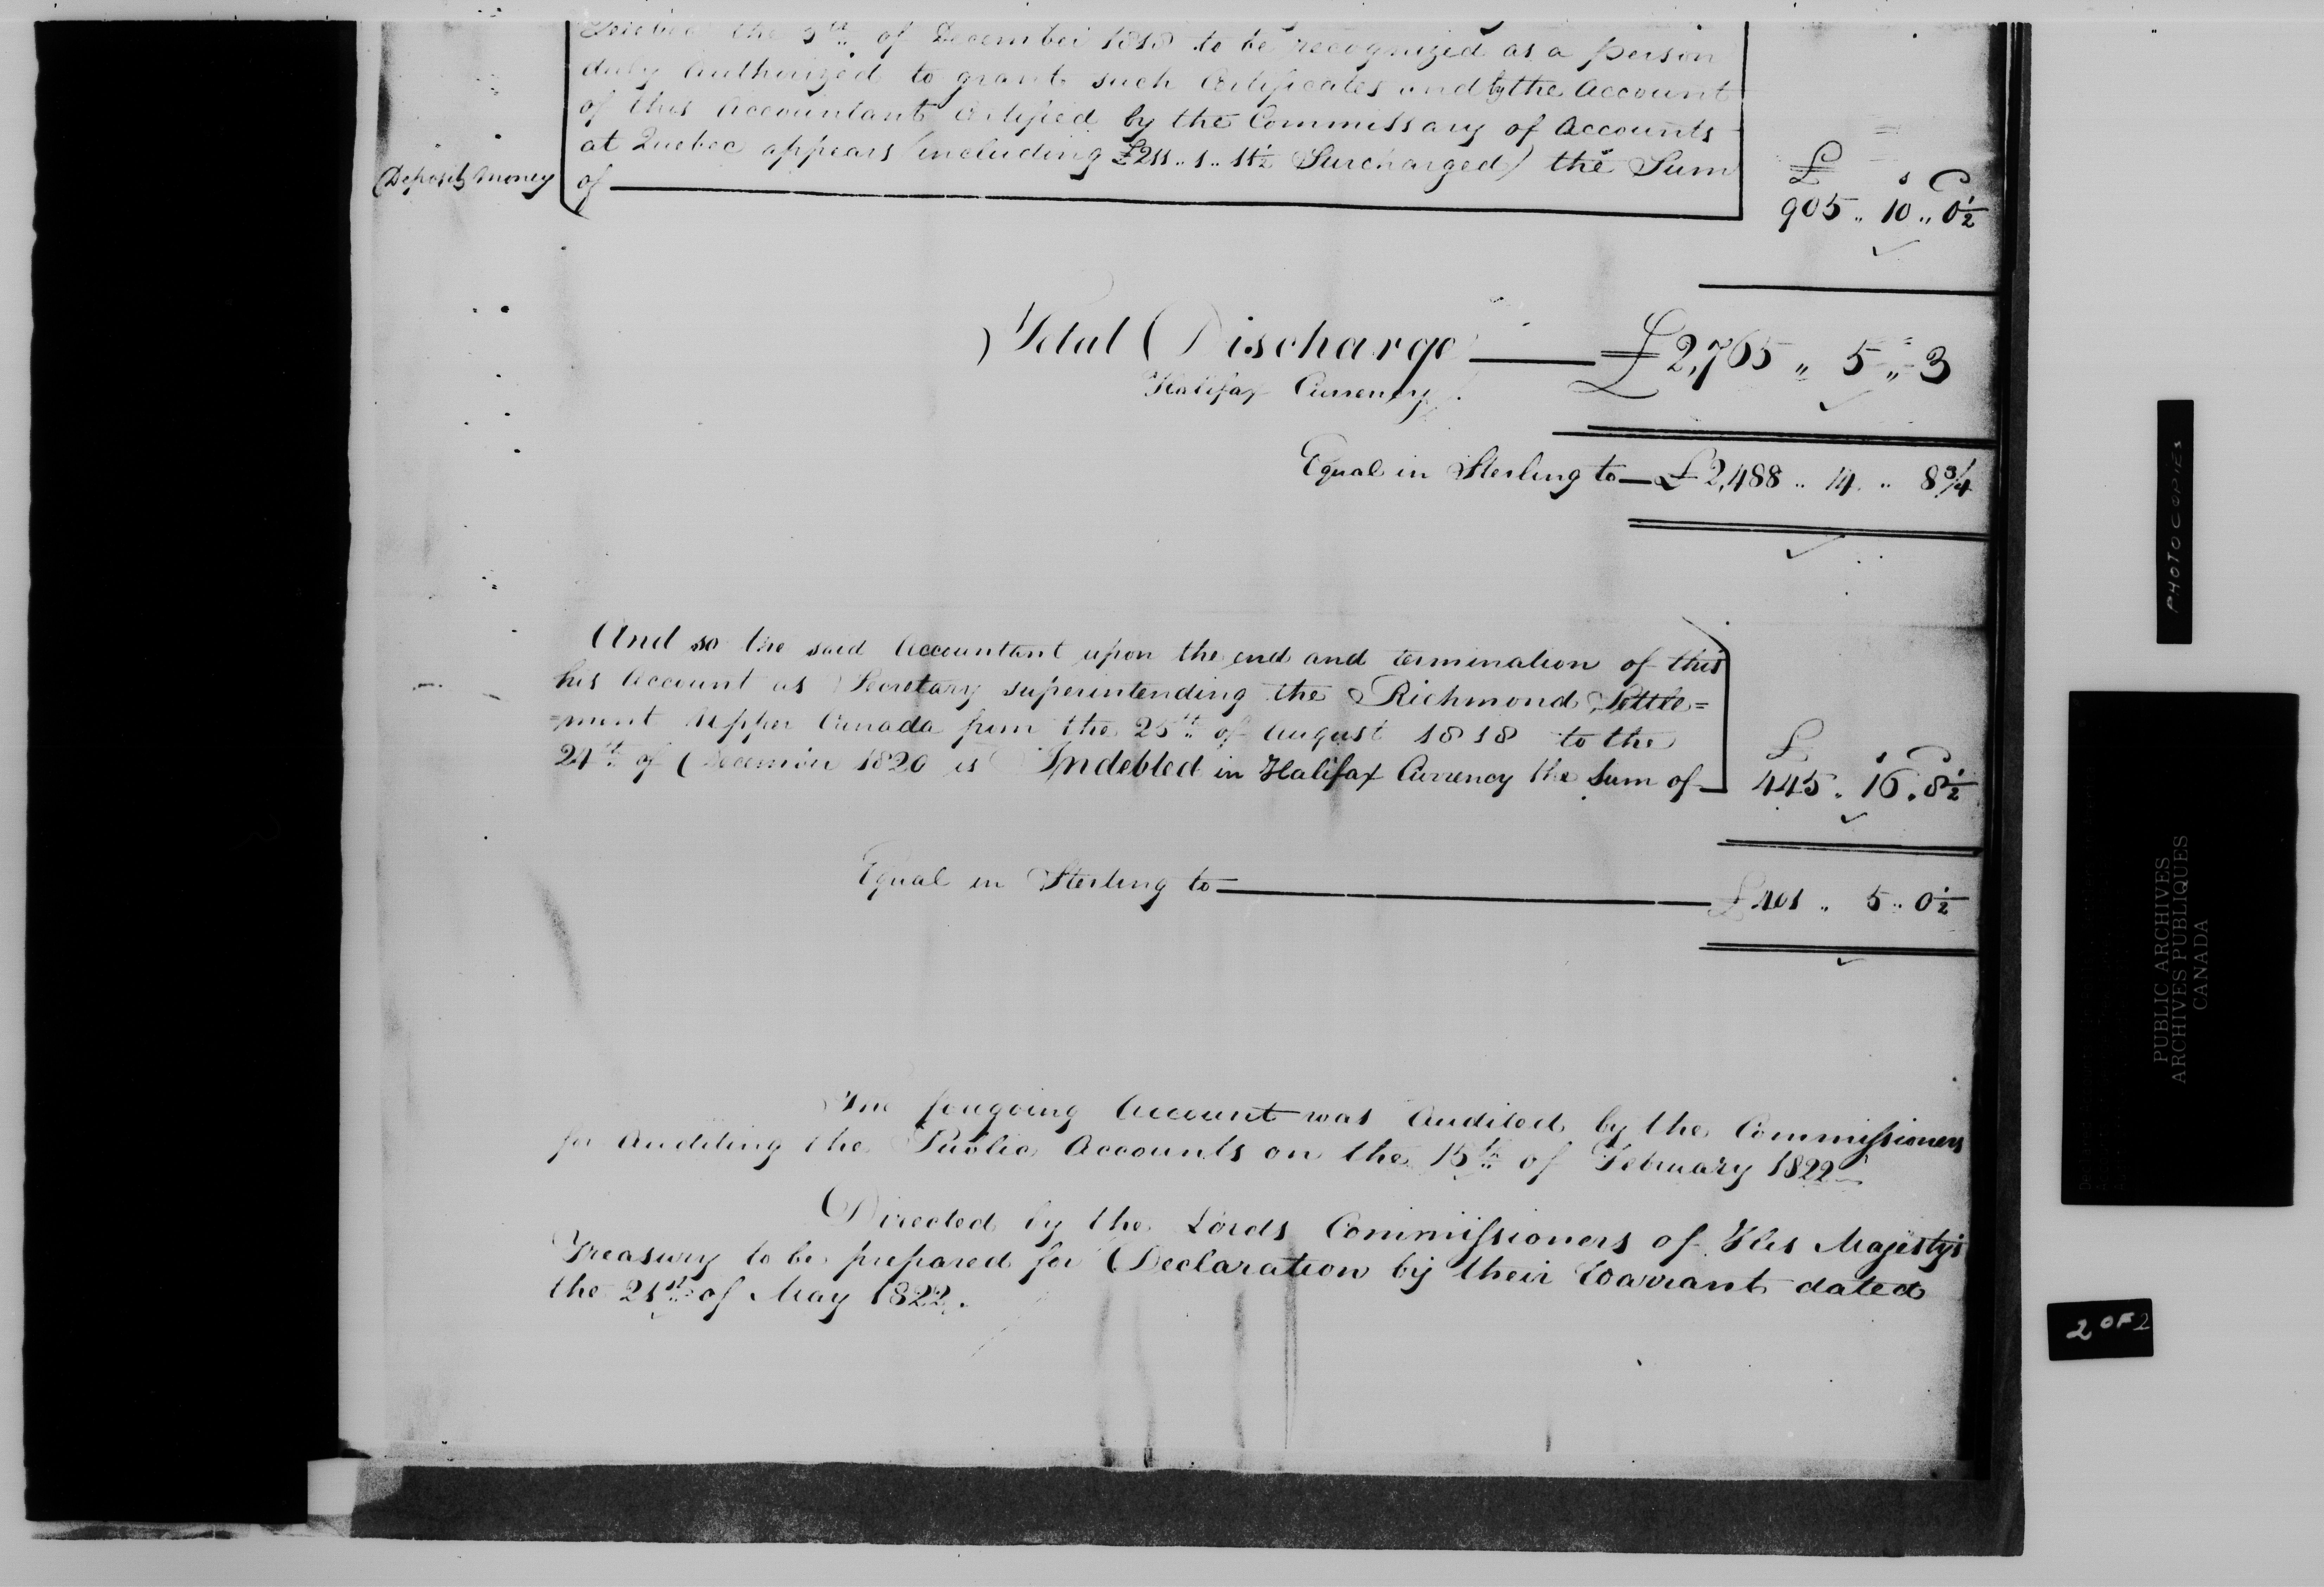 Quebec the 5th of December 1818 to be recognized as a person
duly Authorized to grant such Certificates and by the Account
of this Accountant Certified by the Commissary of Accounts
at Quebec appears (including £211 .. 1 .. 11½ Surcharged) the Sum
Deposit Money
of
£ s D
905 .. 10 .. 0½
Total Discharge £2,765 .. 5 .. 3
Halifax Currency
Equal in Sterling to £2,488 .. 14 .. 8¾
And so the said Accountant upon the end and termination of this
his Account as Secretary superintending the Richmond Settle=
=ment Upper Canada from the 25th of August 1818 to the
24th of December 1820 is Indebted in Halifax Currency the Sum of
£ s D
445 .. 16 .. 8½
Equal in Sterling to £401 .. 5 .. 0½
The foregoing Account was Audited by the Commissioners
for Auditing the Public Accounts on the 15th of February 1822
Directed by the Lords Commissioners of His Majesty's
Treasury to be prepared for Declaration by their Warrant dated
the 21st of May 1822.
PHOTOCOPIES
PUBLIC ARCHIVES
ARCHIVES PUBLIQUES
CANADA
2 OF 2